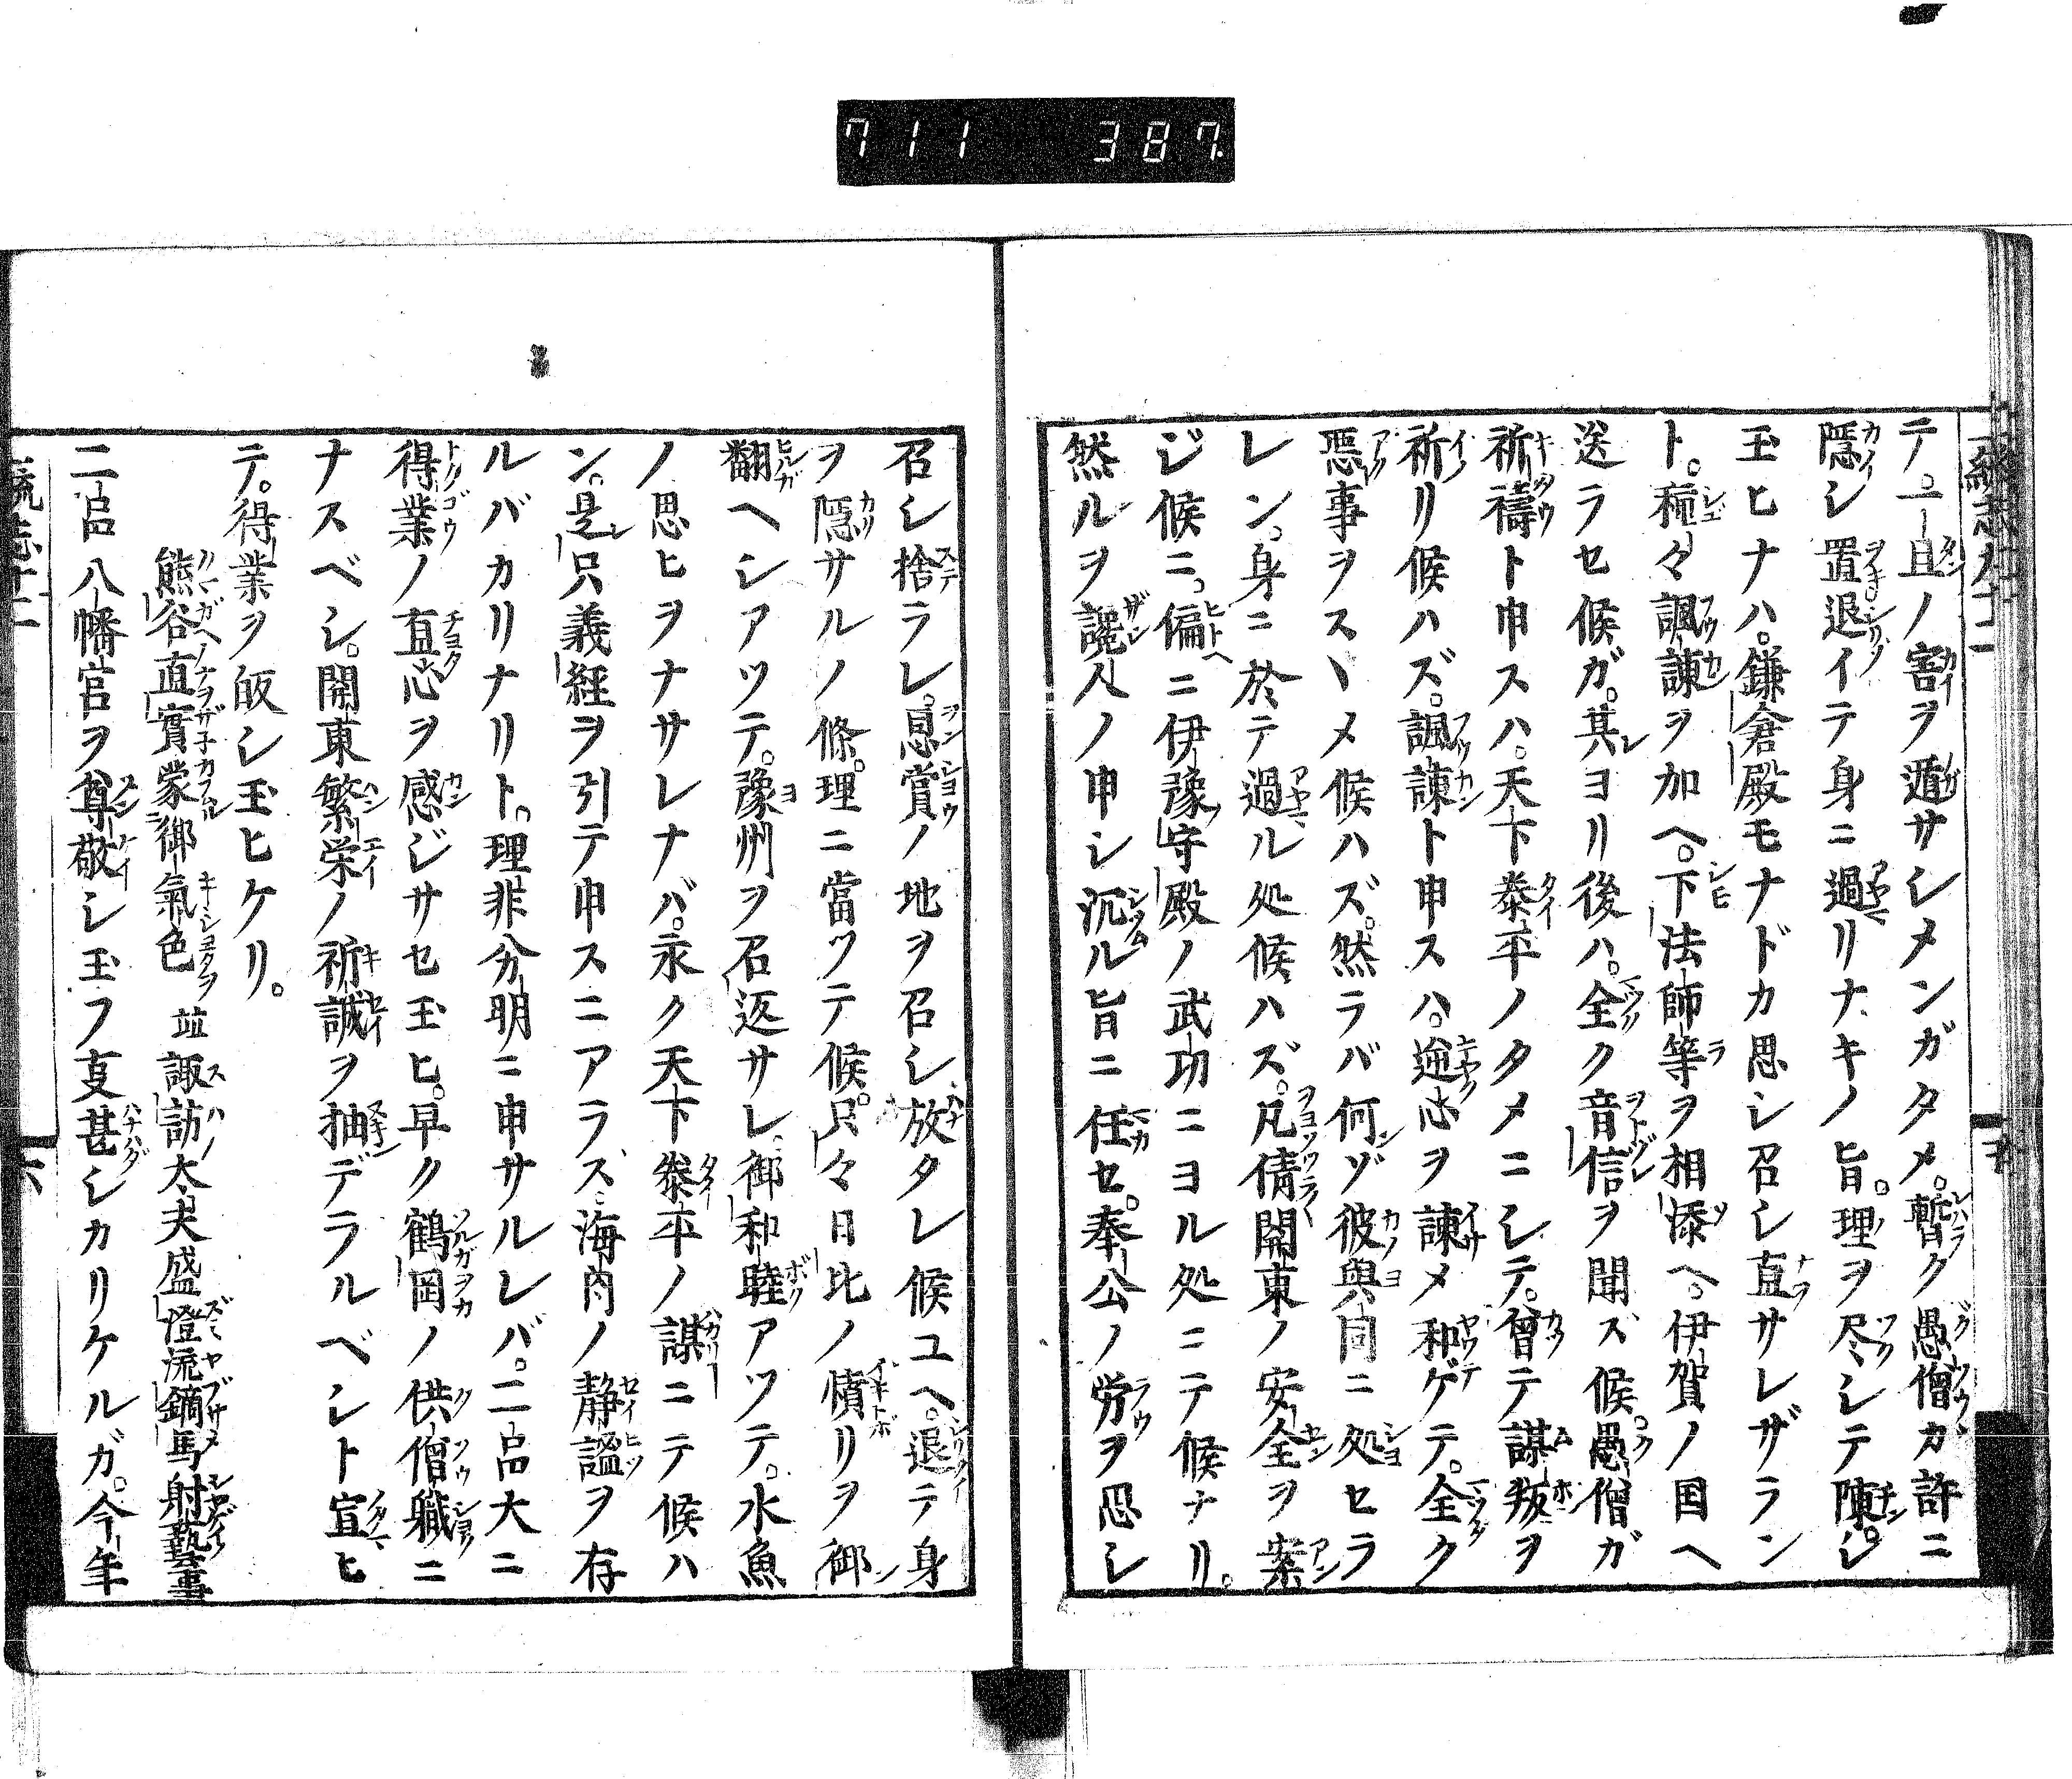 711 387
テ。一旦ノ害ヲ遁サシメンガタメ。暫ク愚僧ガ許ニ
隠シ置退イテ身ニ過リナキノ旨。理ヲ尽シテ陳シ
玉ヒナハ。鎌倉殿モナドカ思シ召シ直サレザラン
ト。種々諷諫ヲ加ヘ。下法師等ヲ相添ヘ。伊賀ノ国ヘ
送ラセ候ガ。其ヨリ後ハ。全ク音信ヲ聞ズ候。愚僧ガ
祈禱ト申スハ。天下泰平ノタメニシテ。曽テ謀叛ヲ
祈リ候ハズ。諷諫ト申スハ。逆心ヲ諫メ和ゲテ。全ク
惡事ヲスヽメ候ハズ。然ラバ何ゾ彼與同ニ処セラ
レン。身ニ於テ過ル処候ハズ。凡倩關東ノ安全ヲ案
ジ候ニ。偏ニ伊豫守殿ノ武功ニヨル処ニテ候ナリ。
然ルヲ讒人ノ申シ沉ル旨ニ任セ。奉公ノ労ヲ忍シ
召シ捨ラレ。恩賞ノ地ヲ召シ放タレ候ユヘ。退テ身
ヲ隠サルノ條。理ニ當ツテ候。只々日比ノ憤リヲ御
翻ヘシアツテ。豫州ヲ召返サレ。御和睦アツテ。水魚
ノ思ヒヲナサレナバ。永ク天下泰平ノ謀ニテ候ハ
ン。是只義経ヲ引テ申スニアラズ。海内ノ静謐ヲ存
ルバカリナリト。理非分明ニ申サルレバ。二品大ニ
得業ノ直心ヲ感ジサセ玉ヒ。早ク鶴岡ノ供僧職ニ
ナスベシ。關東繁栄ノ祈誠ヲ抽デラルベシト宣ヒ
テ。得業ヲ皈シ玉ヒケリ。
熊谷直實蒙御氣色 並諏訪太夫盛澄流鏑馬射藝事
二品八幡宮ヲ尊敬シ玉フ叓甚シカリケルガ。今年
六